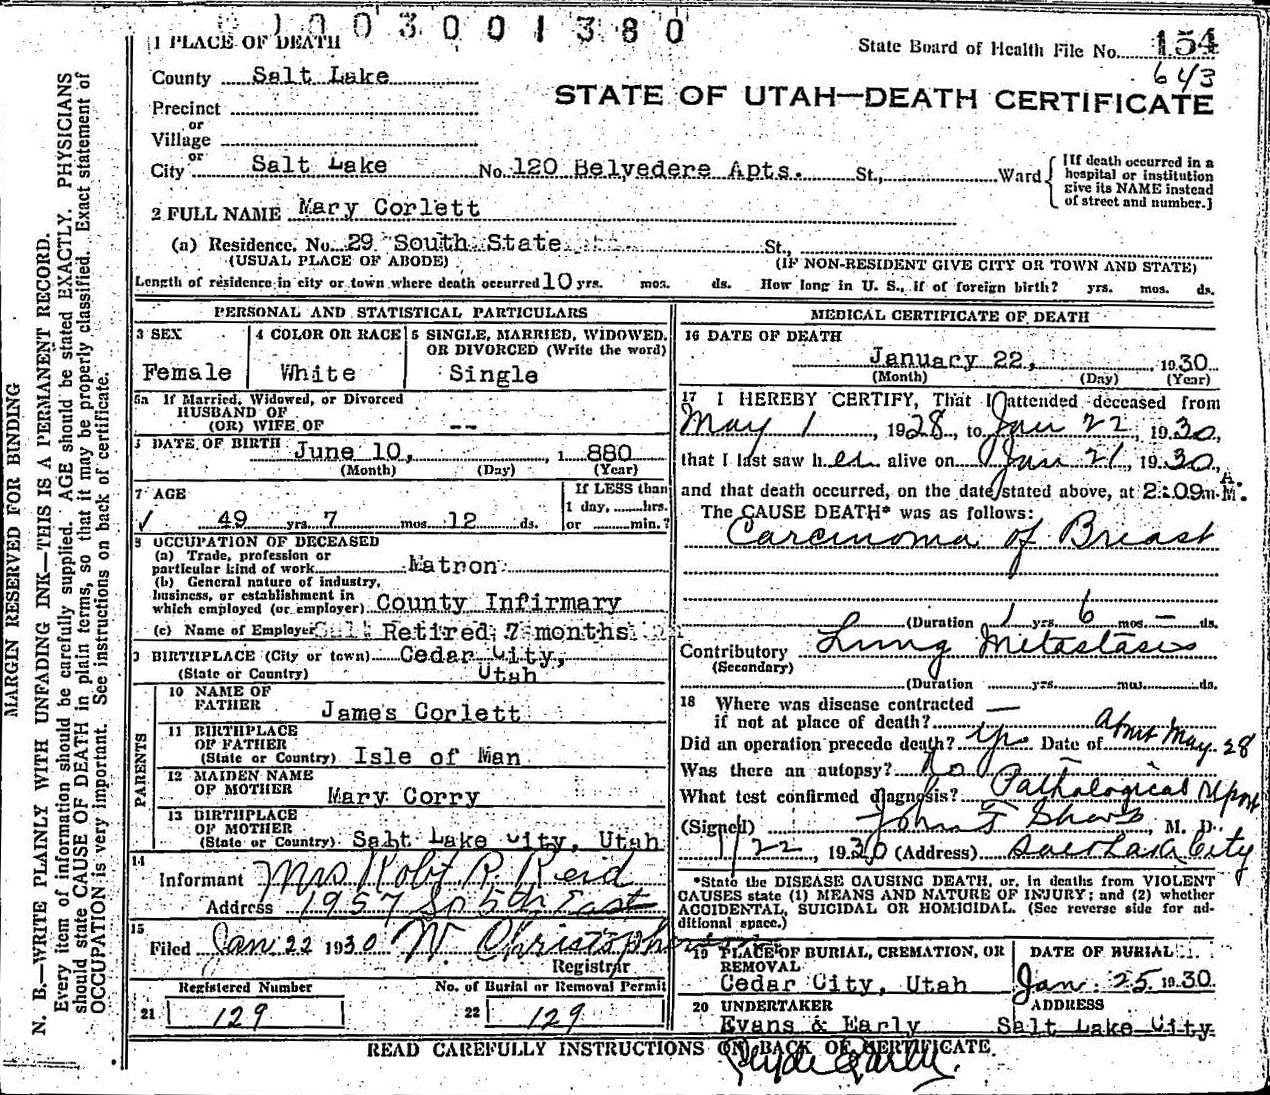 1003001380
1 PLACE OF DEATH
State Board of Health File No. 154
643
County Salt Lake
STATE OF UTAH—DEATH CERTIFICATE
Precinct
or
Village
or
City Salt Lake No. 120 Belvedere Apts. St., Ward
[If death occurred in a hospital or institution give its NAME instead of street and number.]
2 FULL NAME Mary Corlett
(a) Residence. No. 29 South State St.,
(USUAL PLACE OF ABODE) (IF NON-RESIDENT GIVE CITY OR TOWN AND STATE)
Length of residence in city or town where death occurred 10 yrs. mos. ds. How long in U. S., if of foreign birth? yrs. mos. ds.
PERSONAL AND STATISTICAL PARTICULARS
3 SEX
Female
4 COLOR OR RACE
White
5 SINGLE, MARRIED, WIDOWED, OR DIVORCED (Write the word)
Single
5a If Married, Widowed, or Divorced
HUSBAND OF
(OR) WIFE OF --
DATE OF BIRTH June 10, 1 880
(Month) (Day) (Year)
7 AGE
49 yrs. 7 mos. 12 ds.
If LESS than
1 day, hrs.
or min.?
8 OCCUPATION OF DECEASED
(a) Trade, profession or
particular kind of work Matron
(b) General nature of industry,
business, or establishment in
which employed (or employer) County Infirmary
(c) Name of Employer Retired 7 months
9 BIRTHPLACE (City or town) Cedar City,
(State or Country) Utah
PARENTS
10 NAME OF
FATHER James Corlett
11 BIRTHPLACE
OF FATHER
(State or Country) Isle of Man
12 MAIDEN NAME
OF MOTHER Mary Corry
13 BIRTHPLACE
OF MOTHER
(State or Country) Salt Lake City, Utah
14
Informant Mrs Robt R. Reid
Address 1957 So 5th East
15
Filed Jan 22 1930 W. Christopherson
Registrar
Registered Number
21 129
No. of Burial or Removal Permit
22 129
MEDICAL CERTIFICATE OF DEATH
16 DATE OF DEATH
January 22, 1930
(Month) (Day) (Year)
17 I HEREBY CERTIFY, That I attended deceased from
May 1, 1928, to Jan 22, 1930,
that I last saw her alive on Jan 21, 1930,
and that death occurred, on the date stated above, at 2:09 A. M.
The CAUSE DEATH* was as follows:
Carcinoma of Breast
(Duration 1 yrs. 6 mos. — ds.
Contributory Lung Metastasis
(Secondary)
(Duration yrs. mos. ds.
18 Where was disease contracted
if not at place of death? —
Did an operation precede death? yes Date of About May-28
Was there an autopsy? No
What test confirmed diagnosis? Pathological report
(Signed) John F Sharp, M. D.
1/22, 1930 (Address) Salt Lake City
*State the DISEASE CAUSING DEATH, or, in deaths from VIOLENT
CAUSES state (1) MEANS AND NATURE OF INJURY; and (2) whether
ACCIDENTAL, SUICIDAL OR HOMICIDAL. (See reverse side for ad-
ditional space.)
19 PLACE OF BURIAL, CREMATION, OR
REMOVAL
Cedar City, Utah
DATE OF BURIAL
Jan. 25. 1930.
20 UNDERTAKER
Evans & Early
ADDRESS
Salt Lake City
READ CAREFULLY INSTRUCTIONS ON BACK OF CERTIFICATE
Clyde Early.
MARGIN RESERVED FOR BINDING
N. B.—WRITE PLAINLY WITH UNFADING INK—THIS IS A PERMANENT RECORD.
Every item of information should be carefully supplied. AGE should be stated EXACTLY. PHYSICIANS
should state CAUSE OF DEATH in plain terms, so that it may be properly classified. Exact statement of
OCCUPATION is very important. See instructions on back of certificate.